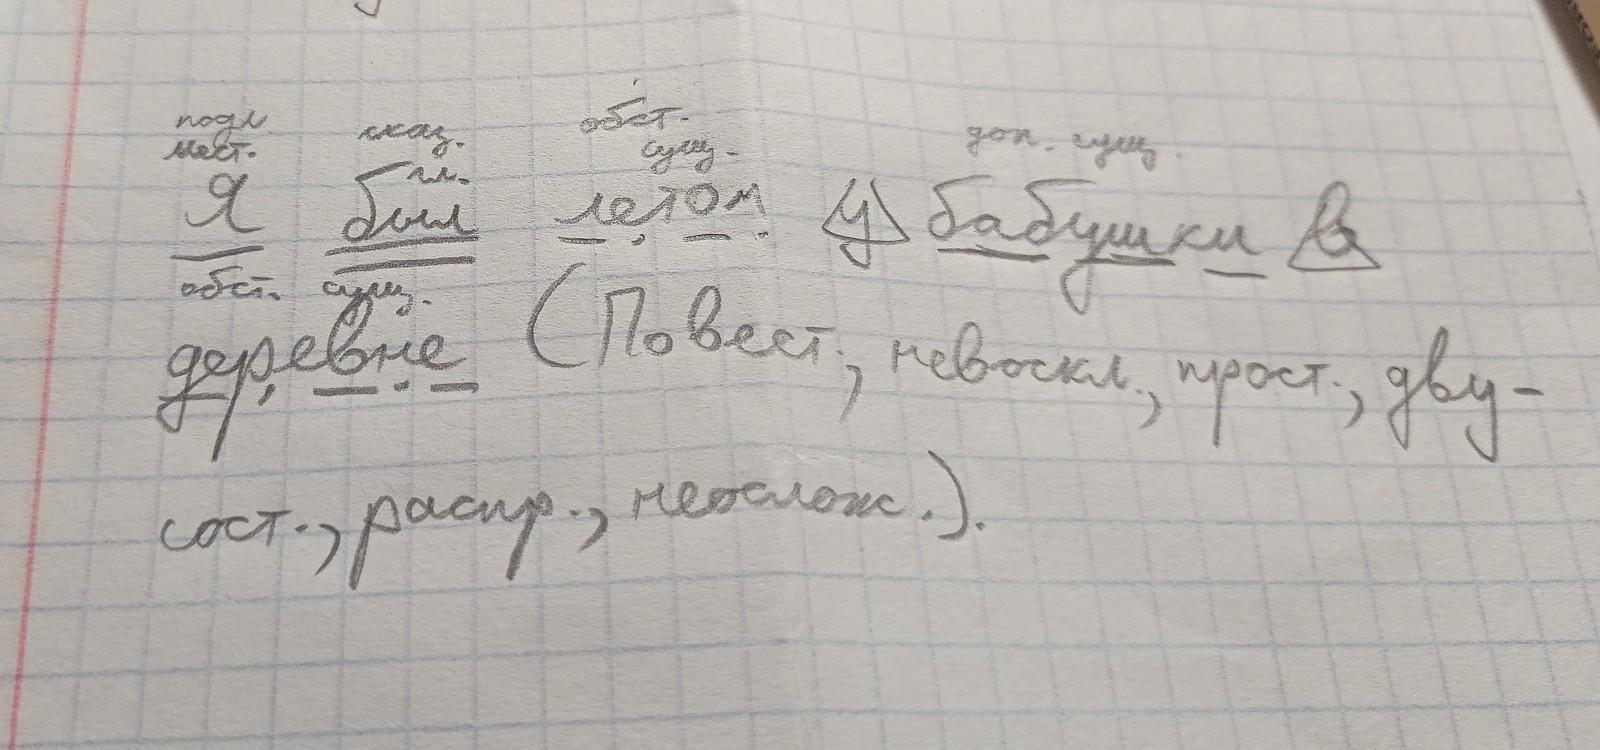 подл. сказ. обст. доп. сущ.
мест. гл. сущ.
Я был летом у бабушки в
обст. сущ.
деревне (Повест., невоскл., прост., дву-
сост., распр., неослож.).